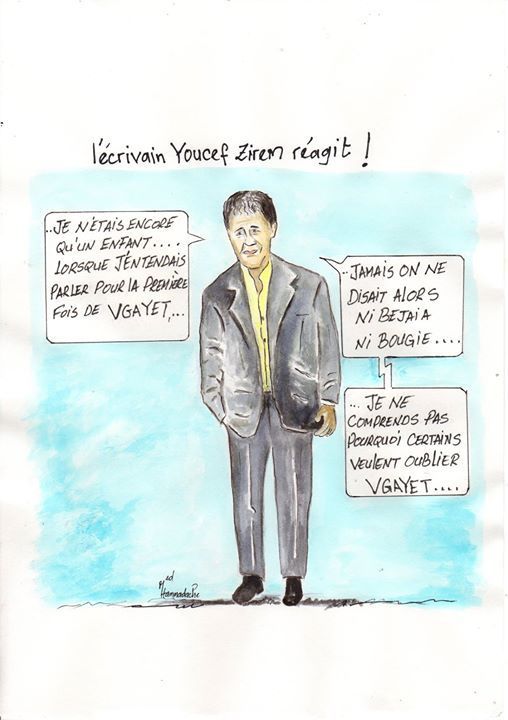 l'écrivain Youcef Zirem réagit !
..JE N'ÉTAIS ENCORE
QU'UN ENFANT....
LORSQUE J'ÉNTENDAIS
PARLER POUR LA PREMIÈRE
FOIS DE VGAYET,...
..JAMAIS ON NE
DISAIT ALORS
NI BEJAIA
NI BOUGIE....
... JE NE
COMPRENDS PAS
POURQUOI CERTAINS
VEULENT OUBLIER
VGAYET....